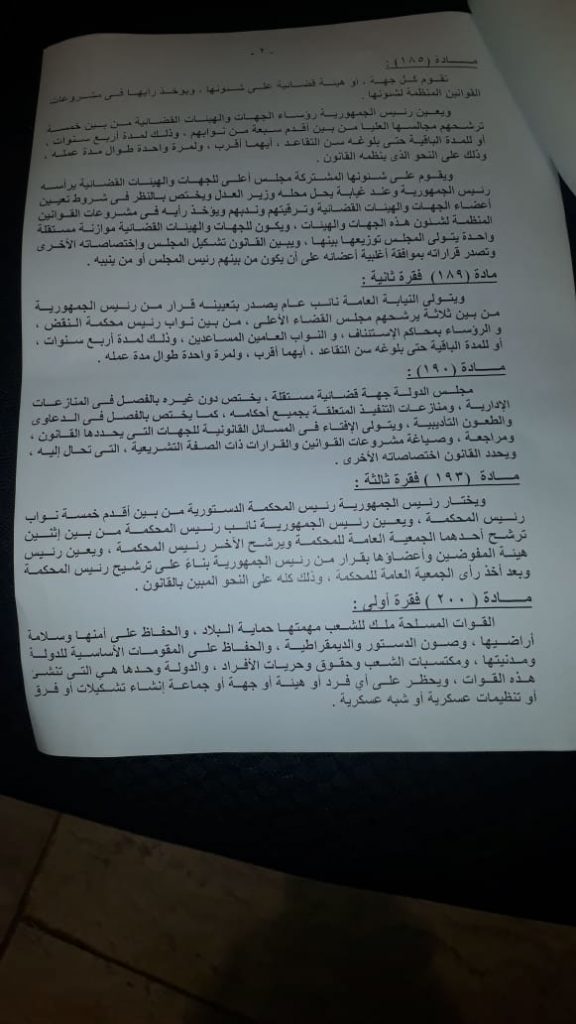 - ٢ -
مــادة (١٨٥) :
تقوم كل جهة ، أو هيئة قضائية على شئونها ، ويؤخذ رأيها فى مشروعات
القوانين المنظمة لشئونها .
ويعين رئيس الجمهورية رؤساء الجهات والهيئات القضائية من بين خمسة
ترشحهم مجالسها العليا من بين أقدم سبعة من نوابهم ، وذلك لمدة أربع سنوات ،
أو للمدة الباقية حتى بلوغه سن التقاعد ، أيهما أقرب ، ولمرة واحدة طوال مدة عمله ،
وذلك على النحو الذى ينظمه القانون .
ويقوم على شئونها المشتركة مجلس أعلى للجهات والهيئات القضائية يرأسه
رئيس الجمهورية وعند غيابة يحل محله وزير العدل ويختص بالنظر فى شروط تعيين
أعضاء الجهات والهيئات القضائية وترقيتهم وندبهم ويؤخذ رأيه فى مشروعات القوانين
المنظمة لشئون هذه الجهات والهيئات ، ويكون للجهات والهيئات القضائية موازنة مستقلة
واحدة يتولى المجلس توزيعها بينها ، ويبين القانون تشكيل المجلس وإختصاصاته الأخرى
وتصدر قراراته بموافقة أغلبية أعضائه على أن يكون من بينهم رئيس المجلس أو من ينيبه .
مادة (١٨٩) فقرة ثانية :
ويتولى النيابة العامة نائب عام يصدر بتعيينه قرار من رئيس الجمهورية
من بين ثلاثة يرشحهم مجلس القضاء الأعلى ، من بين نواب رئيس محكمة النقض ،
و الرؤساء بمحاكم الإستئناف ، و النواب العامين المساعدين ، وذلك لمدة أربع سنوات ،
أو للمدة الباقية حتى بلوغه سن التقاعد ، أيهما أقرب ، ولمرة واحدة طوال مدة عمله .
مــادة (١٩٠) :
مجلس الدولة جهة قضائية مستقلة ، يختص دون غيره بالفصل فى المنازعات
الإدارية ، ومنازعات التنفيذ المتعلقة بجميع أحكامه ، كما يختص بالفصل فى الدعاوى
والطعون التأديبية ، ويتولى الإفتاء فى المسائل القانونية للجهات التى يحددها القانون ،
ومراجعة ، وصياغة مشروعات القوانين والقرارات ذات الصفة التشريعية ، التى تحال إليه ،
ويحدد القانون اختصاصاته الأخرى .
مــادة (١٩٣) فقرة ثالثة :
ويختار رئيس الجمهورية رئيس المحكمة الدستورية من بين أقدم خمسة نواب
رئيس المحكمة ، ويعين رئيس الجمهورية نائب رئيس المحكمة من بين إثنين
ترشح أحدهما الجمعية العامة للمحكمة ويرشح الأخر رئيس المحكمة ، ويعين رئيس
هيئة المفوضين وأعضاؤها بقرار من رئيس الجمهورية بناءً على ترشيح رئيس المحكمة
وبعد أخذ رأى الجمعية العامة للمحكمة ، وذلك كله على النحو المبين بالقانون .
مــادة (٢٠٠) فقرة أولى :
القوات المسلحة ملك للشعب مهمتها حماية البلاد ، والحفاظ على أمنها وسلامة
أراضيها ، وصون الدستور والديمقراطية ، والحفاظ على المقومات الأساسية للدولة
ومدنيتها ، ومكتسبات الشعب وحقوق وحريات الأفراد ، والدولة وحدها هى التى تنشئ
هذه القوات ، ويحظر على أي فرد أو هيئة أو جهة أو جماعة إنشاء تشكيلات أو فرق
أو تنظيمات عسكرية أو شبه عسكرية .